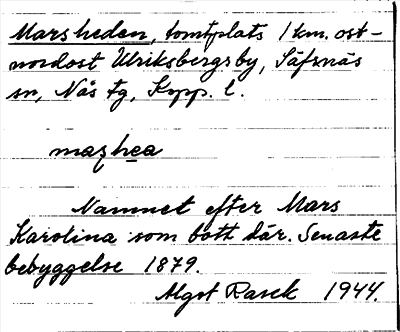 Marsheden, tomtplats 1 km. ost-
nordost Ulriksbergs by, Säfsnäs
sn, Nås tg, Kopp. l.
maʂhea
Namnet efter Mars
Karolina som bott där. Senaste
bebyggelse 1879.
Algot Rasck 1944.